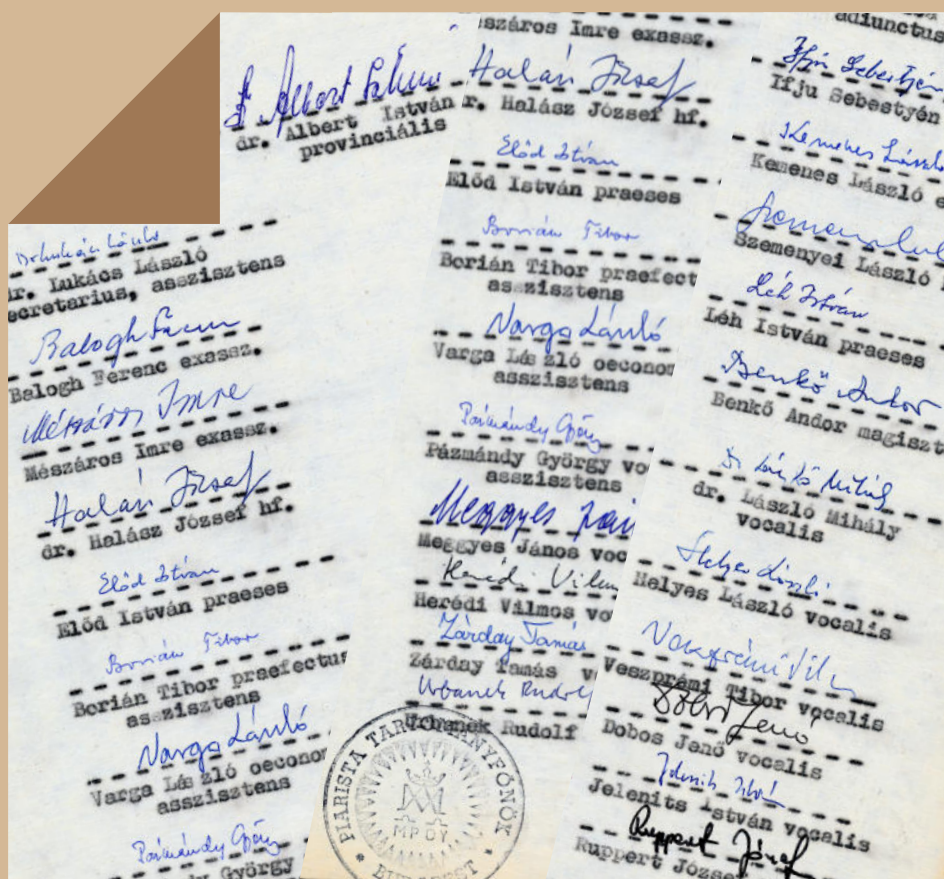 dr. Albert István
provinciális
dr. Lukács László
secretarius, asszisztens
Balogh Ferenc
Balogh Ferenc exassz.
Mészáros Imre
Mészáros Imre exassz.
Halász József
dr. Halász József hf.
Előd István
Előd István praeses
Borián Tibor
Borián Tibor praefectus
asszisztens
Varga László
Varga László oeconom
asszisztens
Pázmándy György
György
száros Imre exassz.
Halász József
r. Halász József hf.
Előd István
Előd István praeses
Borián Tibor
Borián Tibor praefect
asszisztens
Varga László
Varga László oeconom
asszisztens
Pázmándy György
Pázmándy György vo
asszisztens
Meggyes Já
Meggyes János voc
Herédi Vilm
Herédi Vilmos vo
Zárday Tamás
Zárday Tamás v
Urbanek Rudol
Urbanek Rudolf
PIARISTA TARTOMÁNYFŐNÖK
MP ΘY
* BUDAPEST *
adiunctus
Ifjú Sebestyén
Ifju Sebestyén
Kemenes László
Kemenes László e
Szemenyei László
Léh István
Léh István praeses
Benkő Andor
Benkő Andor magiszt
Dr László Mihály
dr. László Mihály
vocalis
Helyes László
Helyes László vocalis
Veszprémi Tibor vocalis
Dobos Jenő
Dobos Jenő vocalis
Jelenits István
Jelenits István vocalis
Ruppert József
Ruppert József